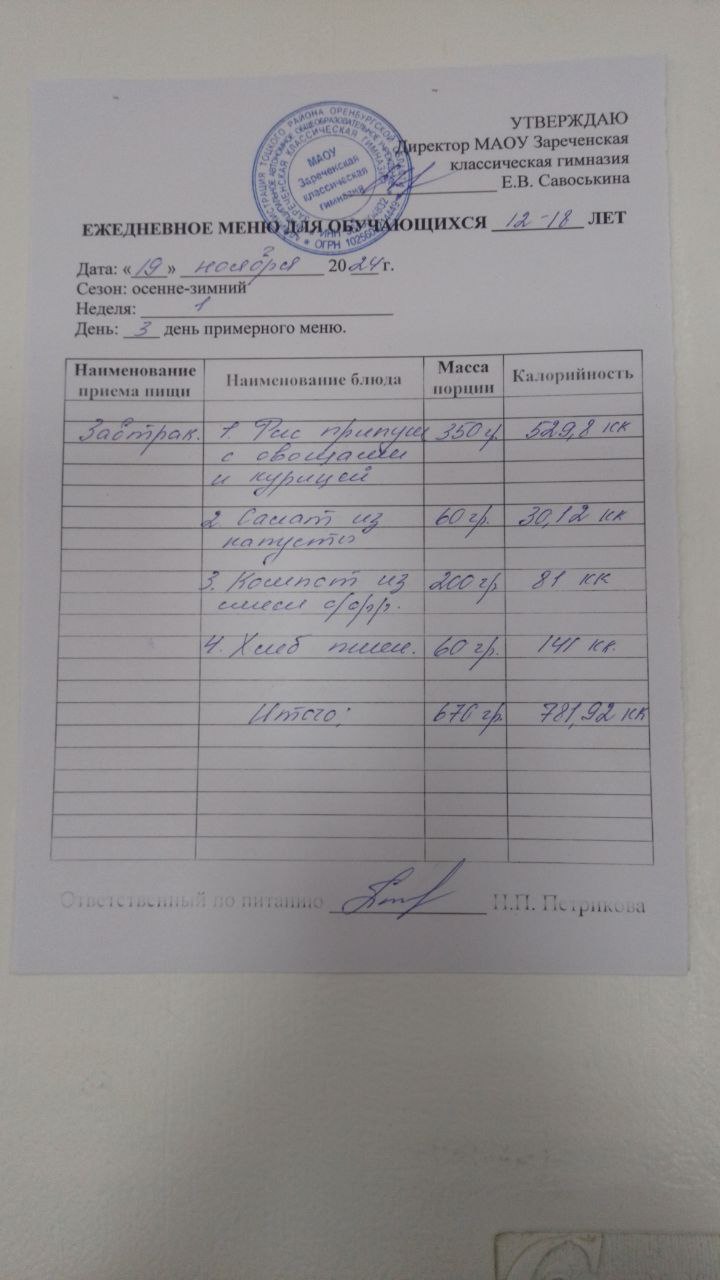 УТВЕРЖДАЮ
Директор МАОУ Зареченская
классическая гимназия
Е.В. Савоськина
МАОУ
Зареченская
классическая
гимназия
ЕЖЕДНЕВНОЕ МЕНЮ ДЛЯ ОБУЧАЮЩИХСЯ 12-18 ЛЕТ
Дата: «19» ноября 2024 г.
Сезон: осенне-зимний
Неделя: 1
День: 3 день примерного меню.
Наименование приема пищи Наименование блюда Масса порции Калорийность
Завтрак. 1. Рис припущ 350 гр. 529,8 кк
с овощами
и курицей
2. Салат из 60 гр. 30,12 кк
капусты
3. Компот из 200 гр 81 кк
смеси с/фр.
4. Хлеб пшен. 60 гр. 141 кк.
Итого: 670 гр. 781,92 кк
Ответственный по питанию Н.П. Петрикова